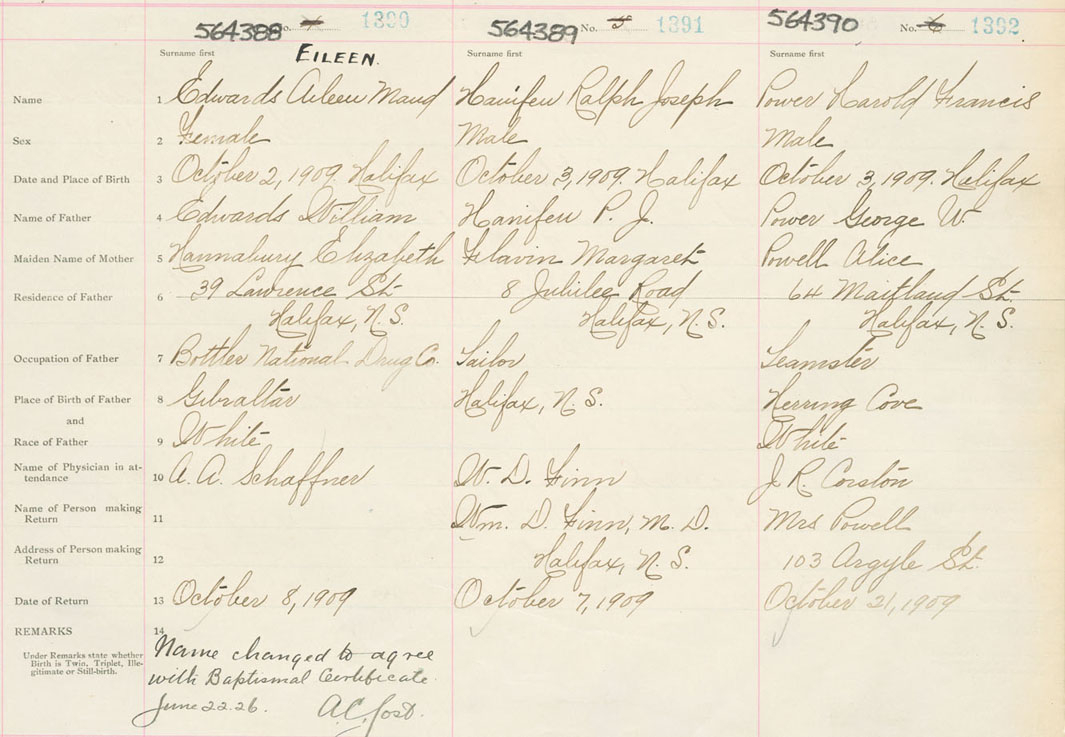 564388 No. 4 1390 564389 No. 5 1391 564390 No. 6 1392
Surname first EILEEN. Surname first Surname first
Name 1 Edwards Aileen Maud Hanifen Ralph Joseph Power Harold Francis
Sex 2 Female Male Male
Date and Place of Birth 3 October 2, 1909. Halifax October 3, 1909. Halifax October 3, 1909. Halifax
Name of Father 4 Edwards William Hanifen P. J. Power George W.
Maiden Name of Mother 5 Hannabury Elizabeth Flavin Margaret Powell Alice
Residence of Father 6 39 Lawrence St. 8 Jubilee Road 64 Maitland St.
Halifax, N.S. Halifax, N.S. Halifax, N.S.
Occupation of Father 7 Bottler National Drug Co. Tailor Teamster
Place of Birth of Father 8 Gibraltar Halifax, N.S. Herring Cove
and
Race of Father 9 White White
Name of Physician in at-
tendance 10 A. A. Schaffner W. D. Finn J. R. Corston
Name of Person making
Return 11 Wm. D. Finn, M.D. Mrs Powell
Address of Person making
Return 12 Halifax, N.S. 103 Argyle St.
Date of Return 13 October 8, 1909 October 7, 1909 October 21, 1909
REMARKS 14
Under Remarks state whether
Birth is Twin, Triplet, Ille-
gitimate or Still-birth.
Name changed to agree
with Baptismal Certificate.
June 22.26. A.C. Jost.